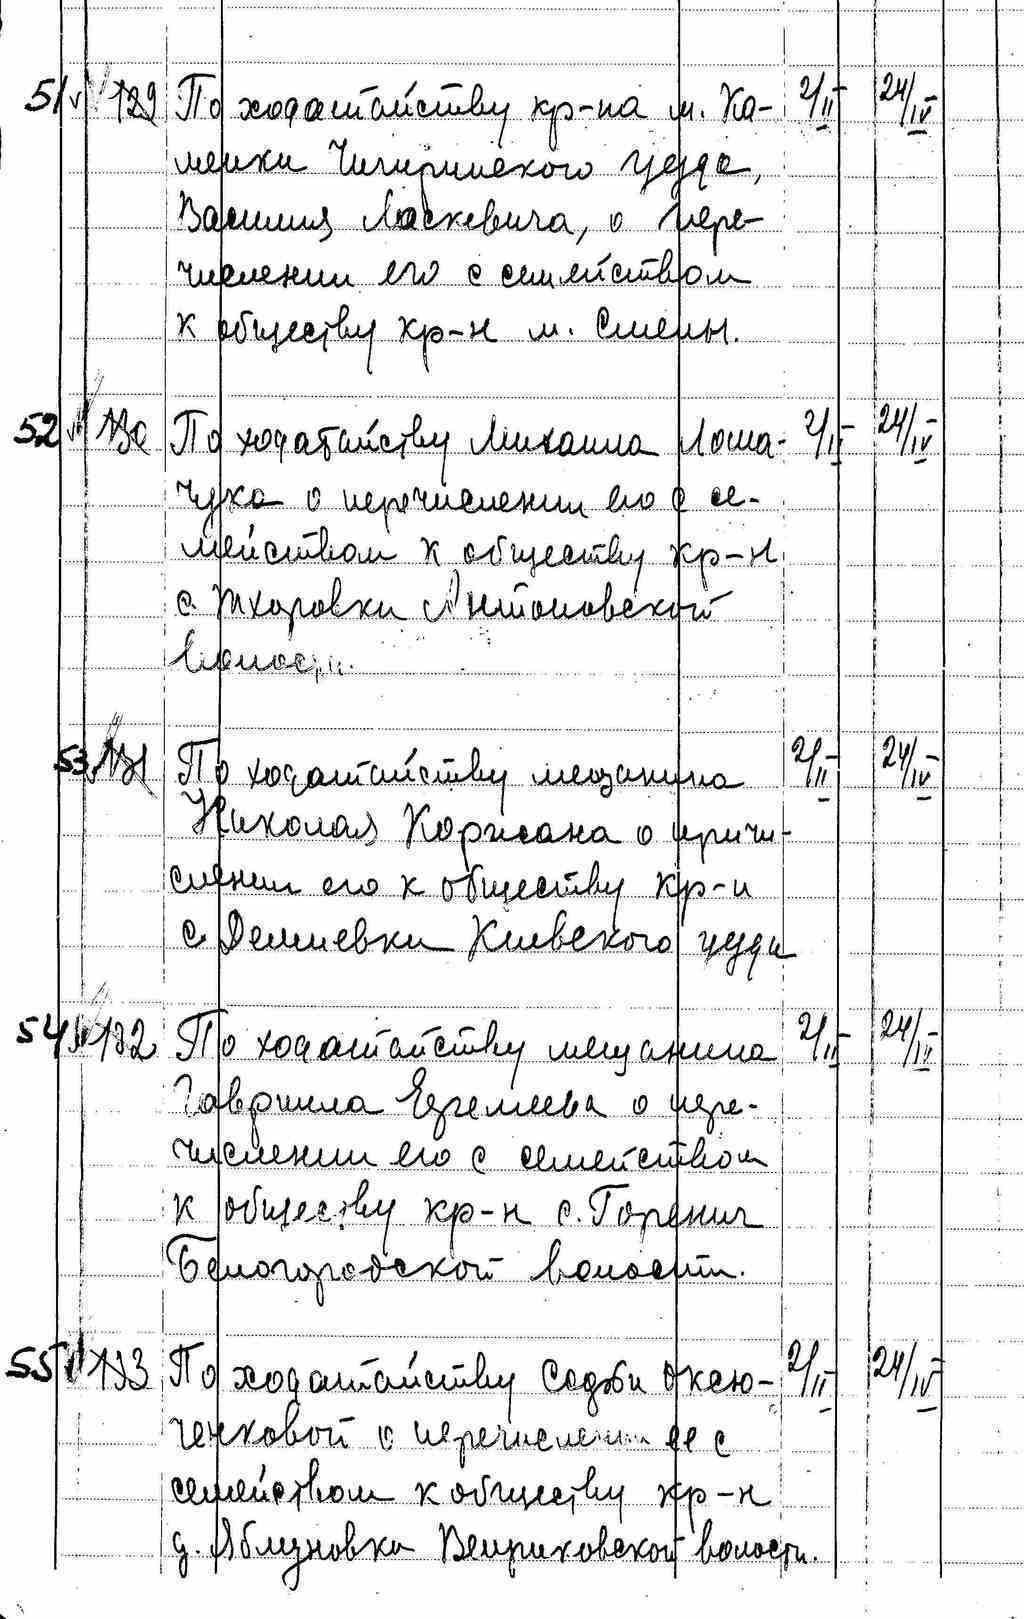 51 129 По ходатайству кр-на м. Ка- 2/II 24/IV
менки Чигиринского уезда,
Василия Ласкевича, о пере-
числении его с семейством
к обществу кр-н м. Смелы.
52 130 По ходатайству Михаила Лоша- 2/II 24/IV
чука о перечислении его с се-
мейством к обществу кр-н
с. Тхоровки Антоновской
волости.
53 131 По ходатайству мещанина 2/II 24/IV
Николая о причи-
слении его к обществу кр-н
с. Демиевки Киевского уезда
54 132 По ходатайству мещанина 2/II 24/IV
Гавриила Еремеева о пере-
числении его с семейством
к обществу кр-н с. Горенич
Белогородской волости.
55 133 По ходатайству Софьи Оксю- 2/II 24/IV
ченковой о перечислении ее с
семейством к обществу кр-н
д. Яблуновка Веприковской волости.